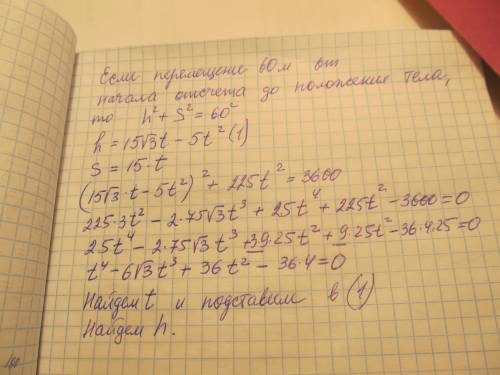 Если перемещение 60 м от
начала отсчета до положения тела,
то h² + S² = 60²
h = 15√3t - 5t² (1)
S = 15·t
(15√3·t - 5t²)² + 225t² = 3600
225·3t² - 2·75√3t³ + 25t⁴ + 225t² - 3600 = 0
25t⁴ - 2·75√3 t³ + 39·25t² + 9·25t² - 36·4·25 = 0
t⁴ - 6√3t³ + 36t² - 36·4 = 0
Найдем t и подставим в (1)
Найдем h.